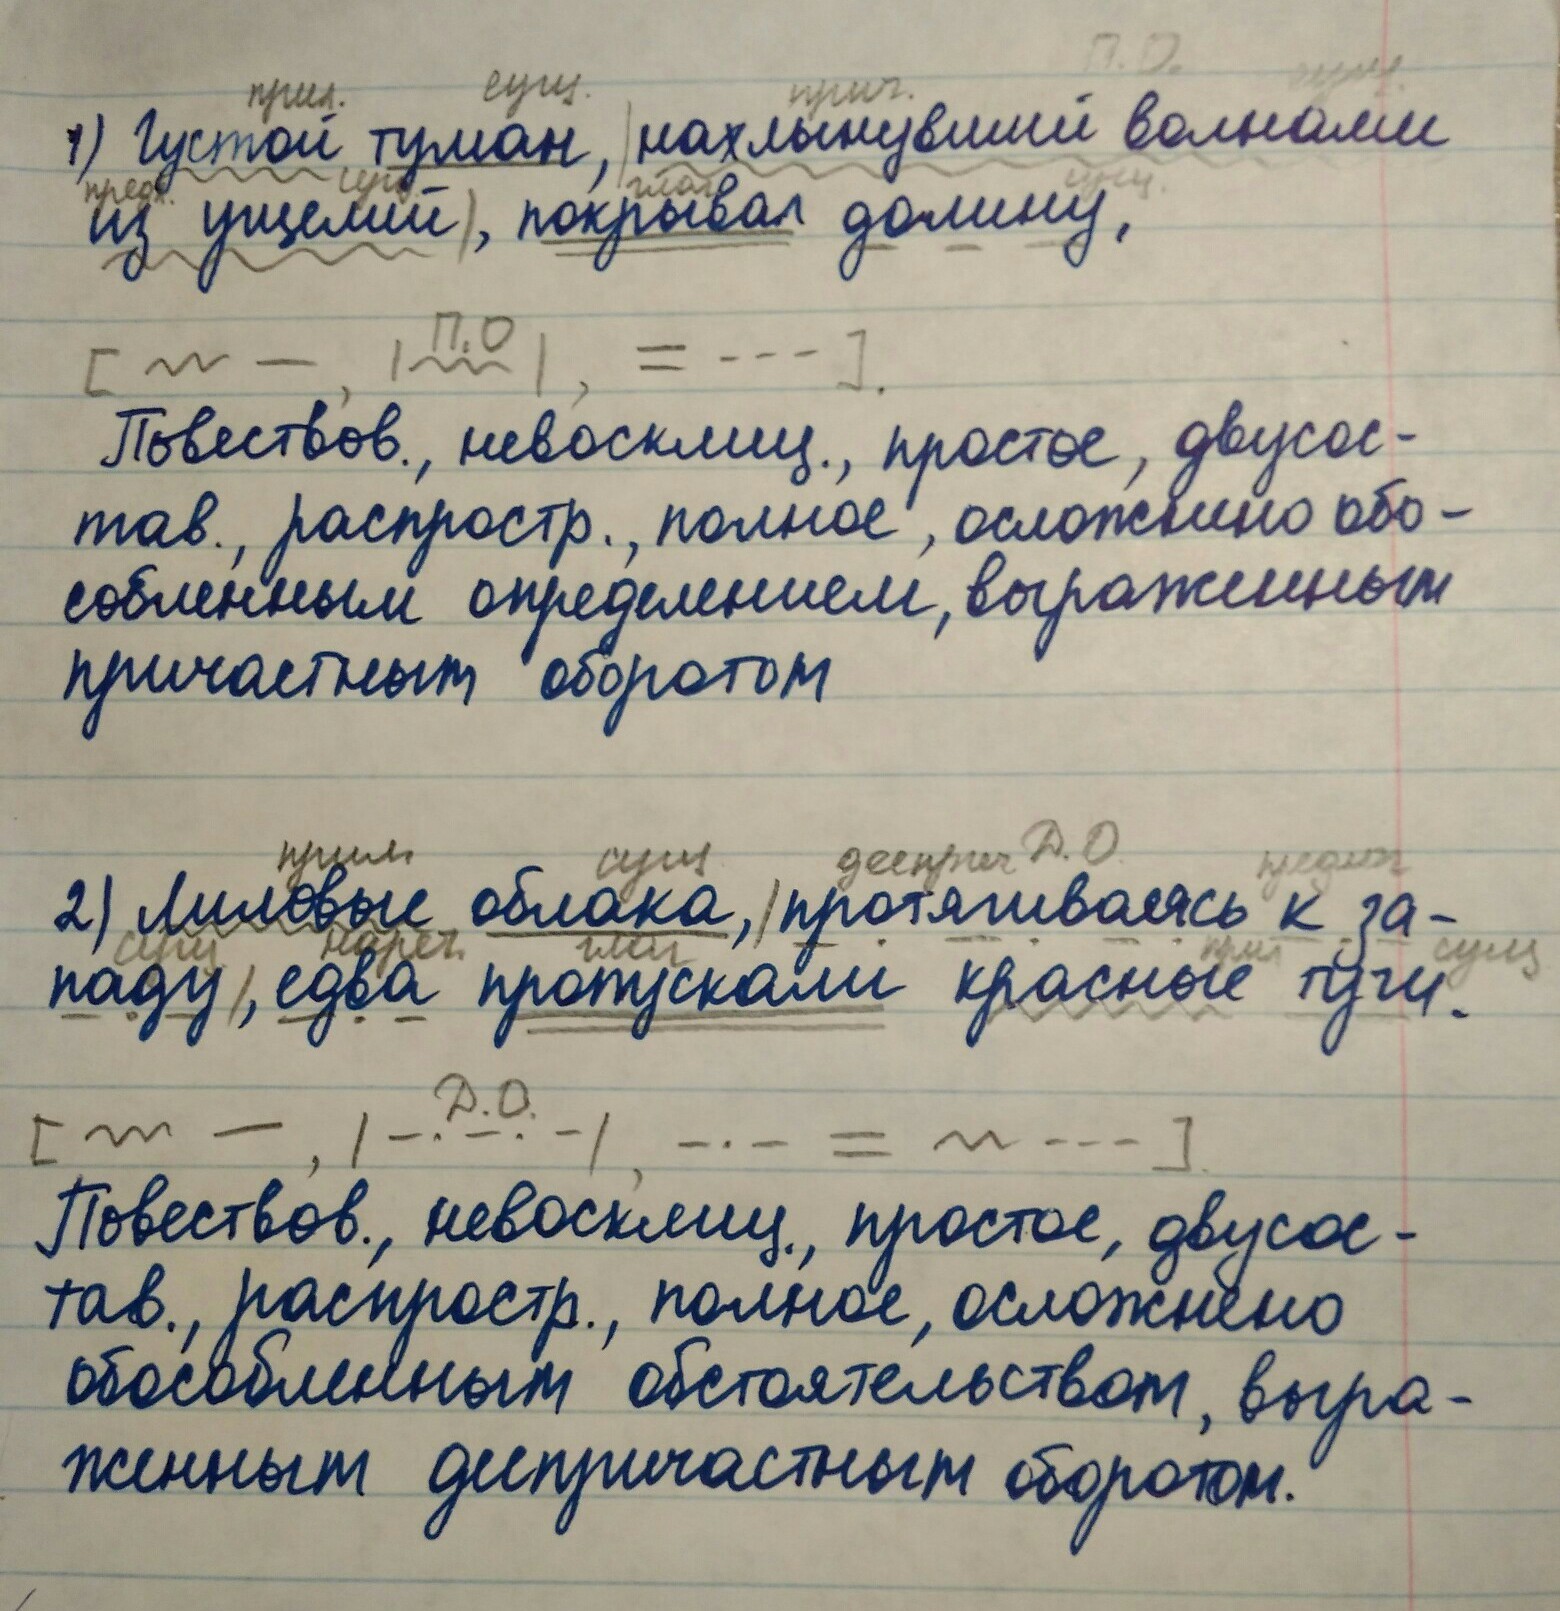 П.О.
прил. сущ. прич. сущ.
1) Густой туман, |нахлынувший волнами
предл. сущ. глаг. сущ.
из ущелий|, покрывал долину,
П.О
[ ~~ — , |~~~| , = --- ].
Повествов., невосклиц., простое, двусос-
тав., распростр., полное, осложнено обо-
собленным определением, выраженным
причастным оборотом
прил. сущ дееприч Д.О. предлог
2) Лиловые облака, |протягиваясь к за-
сущ нареч. глаг прил сущ
паду|, едва пропускали красные тучи.
Д.О.
[ ~~ — , |-.-.-| , -.- = ~ --- ].
Повествов., невосклиц., простое, двусос-
тав., распростр., полное, осложнено
обособленным обстоятельством, выра-
женным деепричастным оборотом.